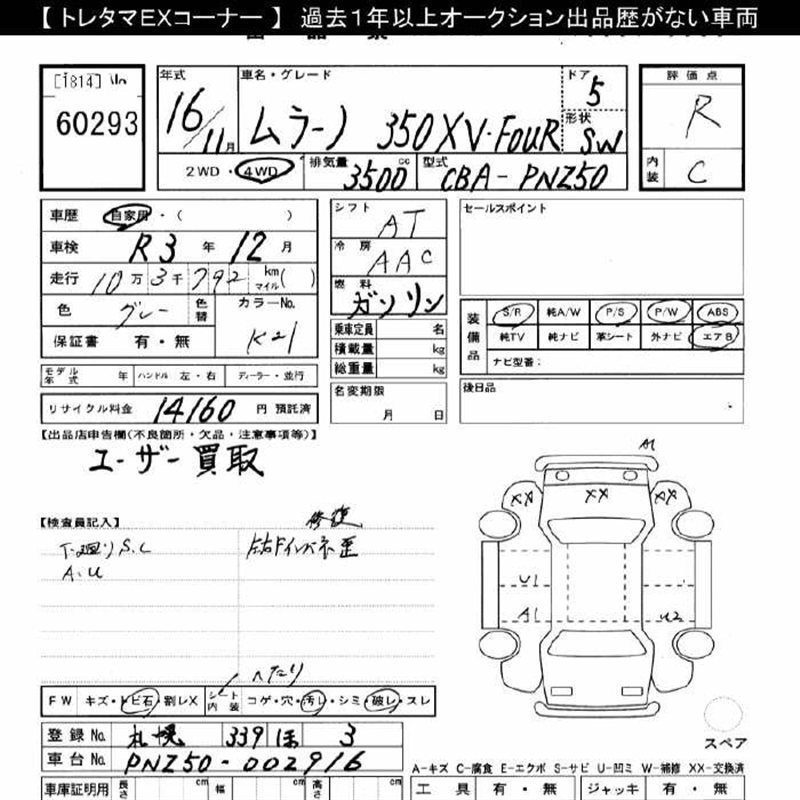 【 トレタマEXコーナー 】 過去1年以上オークション出品歴がない車両
60293
年式 16/11月
車名・グレード ムラーノ 350XV・FOUR
ドア 5
形状 SW
評価点 R
内装 C
2WD・4WD
排気量 3500 cc
型式 CBA-PNZ50
車歴 自家用・( )
車検 R3 年 12 月
走行 10 万 3 千 792 km マイル ( )
色 グレー 色替 カラーNo. K21
保証書 有・無
シフト AT
冷房 AAC
燃料 ガソリン
乗車定員 名
積載量 kg
総重量 kg
セールスポイント
装備品 S/R 純A/W P/S P/W ABS
純TV 純ナビ 革シート 外ナビ エアB
ナビ型番:
モデル年式 年 ハンドル 左・右 ディーラー・並行
名変期限 月 日
後日品
リサイクル料金 14160 円 預託済
【出品店申告欄(不良箇所・欠品・注意事項等)】
ユーザー買取
【検査員記入】
修復
下廻りS.C
A.U
左右Fインパネ歪
A1
XX XX XX
U1
A1 U2
スペア
へたり
FW キズ・トビ石・割レX シート内装 コゲ・穴・汚レ・シミ・破レ・スレ
登録No. 札幌 339 ほ 3
車台No. PNZ50-002916
A-キズ C-腐食 E-エクボ S-サビ U-凹ミ W-補修 XX-交換済
車庫証明用 長さ cm 幅 cm 高さ cm
工具 有・無 ジャッキ 有・無